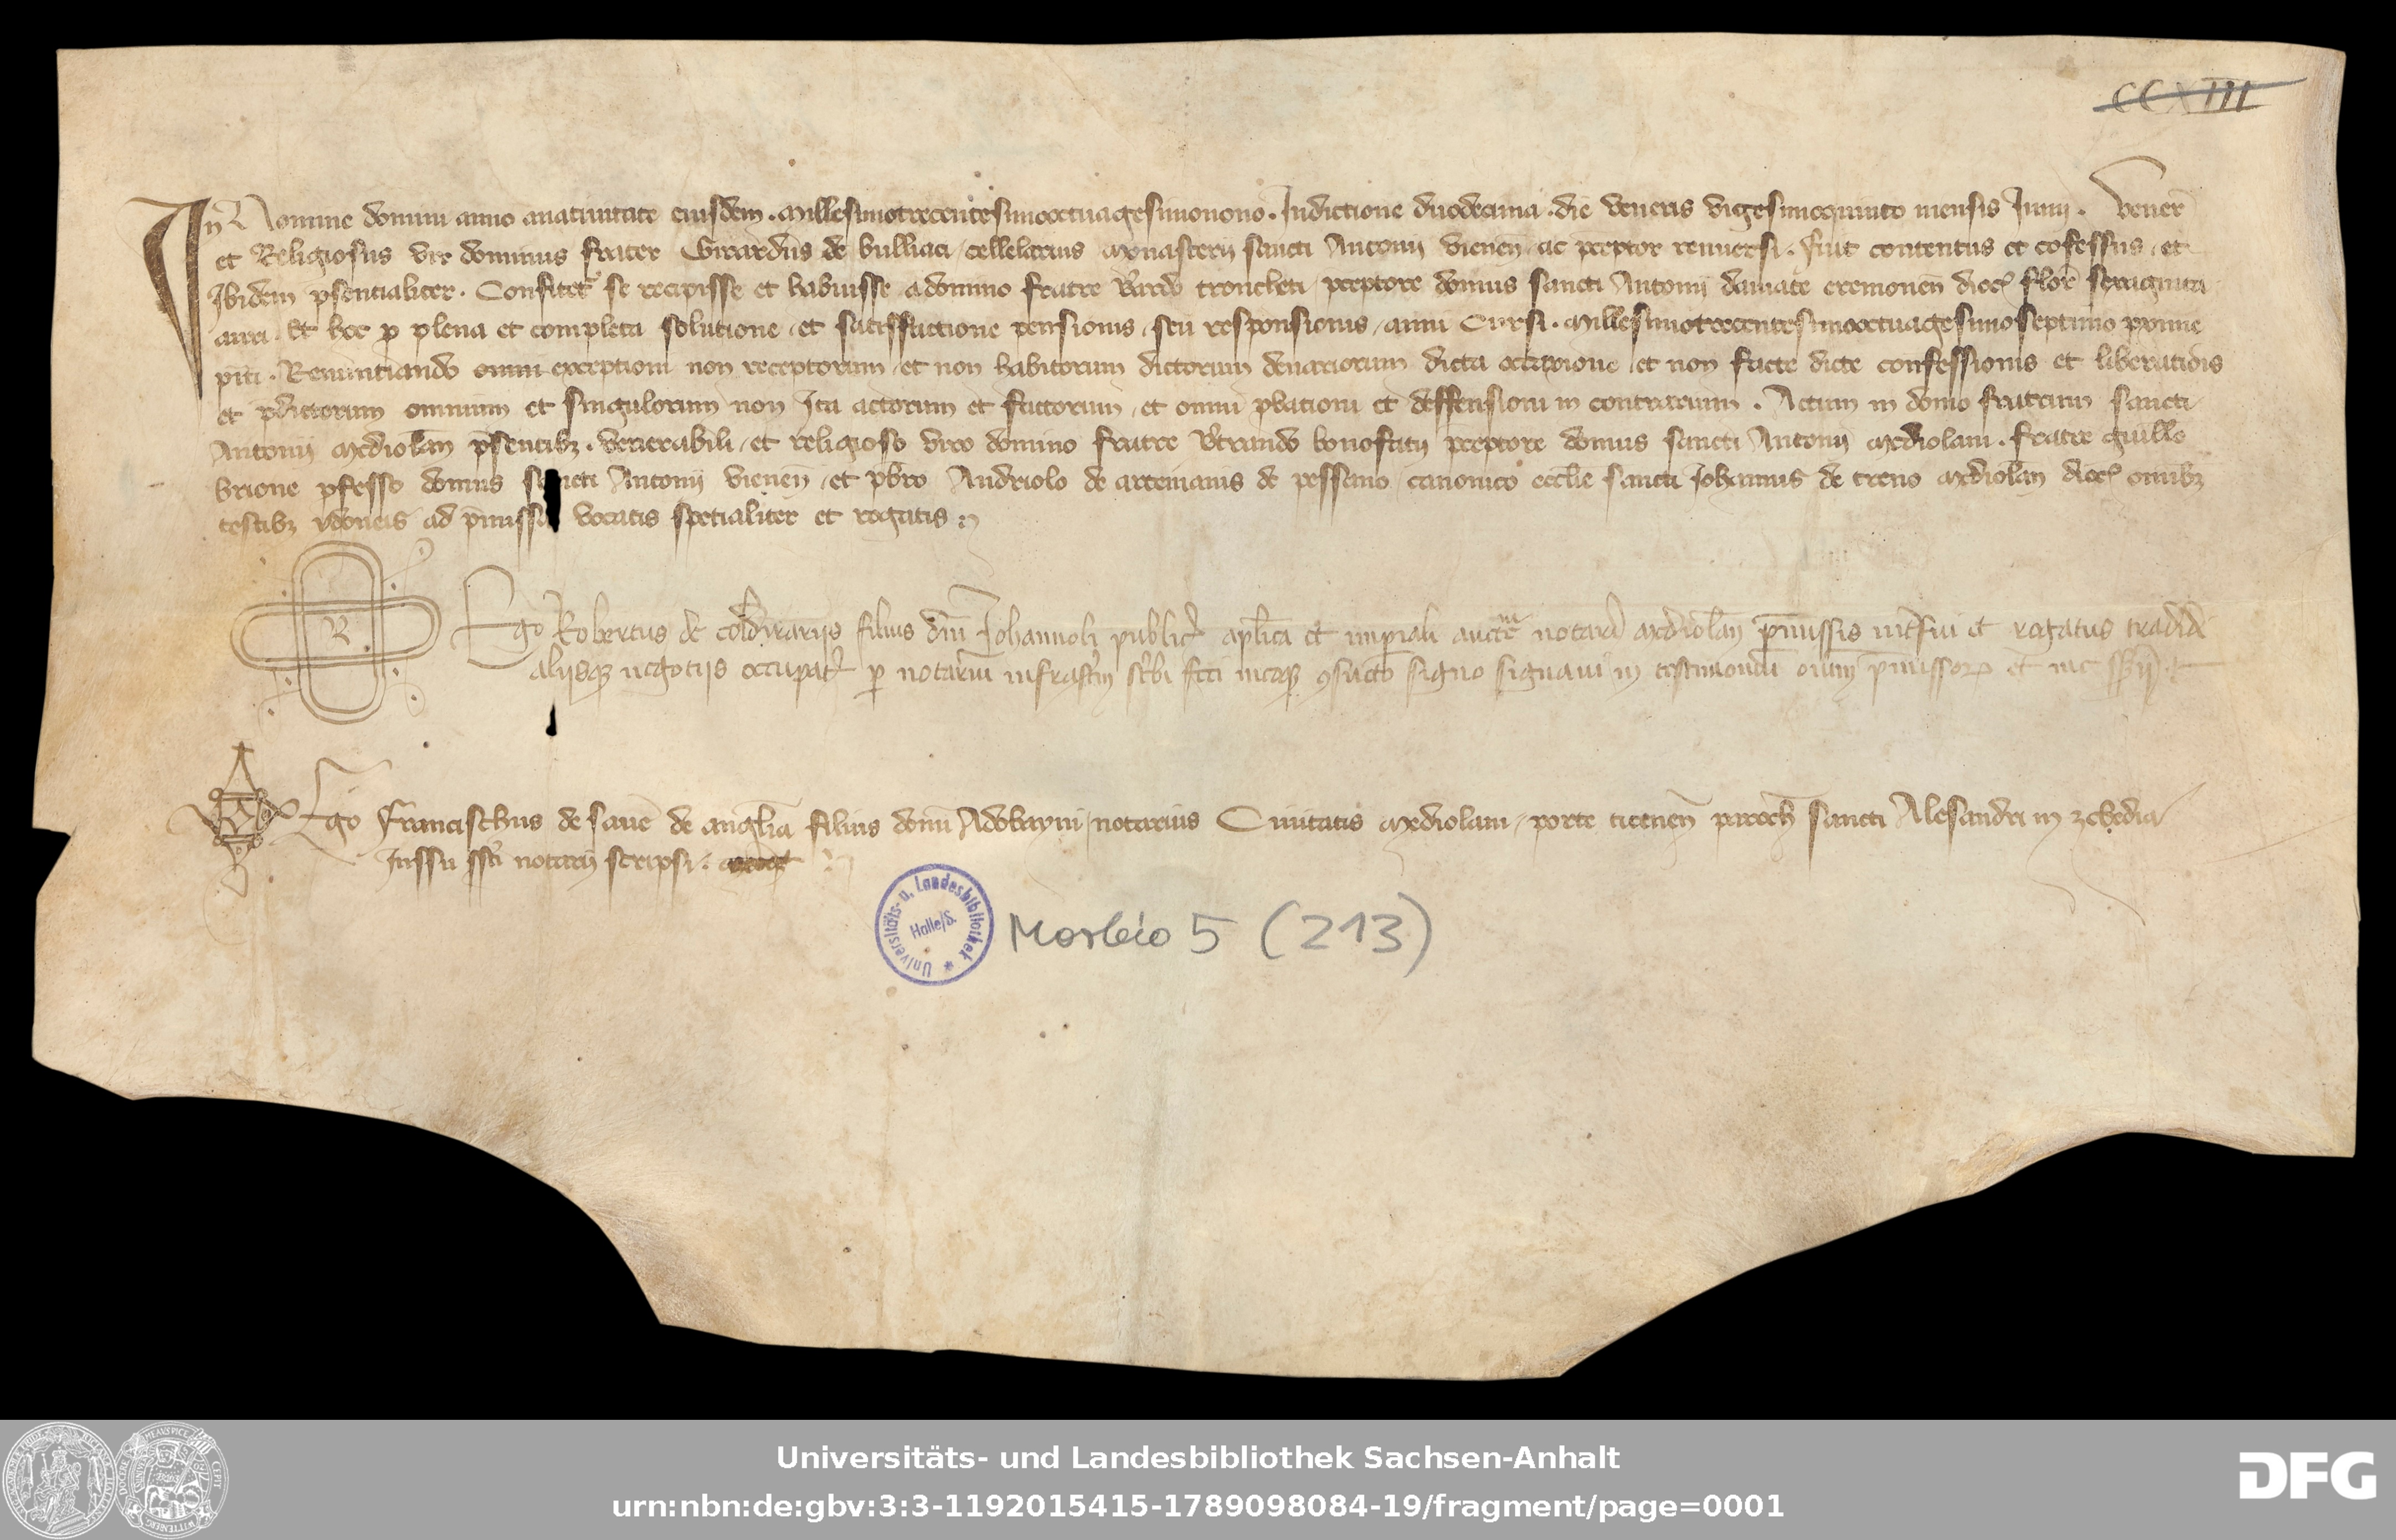 CCXIII
In Nomine domini anno anatiuitate eiusdem. Millesimotrecentesimooctuagesimonono. Indictione duodecima. die veneris vigesimoquinto mensis Iunij. Vener
et Religiosus vir dominus frater Girardus de bulliaci, cellelarius Monasterij sancti Antonij vienen ac pceptor reuuersi. fuit contentus et cofessus, et
Ibidem psentialiter. Confitetr se recipisse et habuisse adomino fratre troncheti, pceptore domus sancti Antonij cremonen dioc flor sexaginta
auri. Et hoc p plena et completa solutione, et satisffactione pensionis, seu responsionis, anni Cursi. Millesimotrecentesimooctuagesimoseptimo pxime
piti. Renuntiando omni exceptioni non receptorum, et non habitorum dictorum denariorum dicta occaxione, et non facte dicte confessionis et liberatiois
et pdictorum omnium et singulorum non Ita actorum et factorum, et omni pbationi et deffensioni in contrarium. Actum in domo fratrum sancti
Antonij Mediolan psentibz. venerabili, et religioso viro domino fratre Btrando bonofatij preptore domus sancti Antonij Mediolani. fratre guillo
brione pfesso domus sancti Antonij vienen, et pbro Andriolo de artemanis de pessano, canonico ecclie sancti Iohannis de treno Mediolan dioc omibz
testibz ydoneis ad pmissa vocatis spetialiter et rogatis
R Ego Robertus de filius dni Iohannoli publicus aplica et imperiali aucte notari Mediolan pmissis intfui et rogatus tradidi
alijsq negotijs occupat p notarium infrasctm scbi feci meoq gsueto signo signaui in testimonium oium pmissor et me ssii
Ego Francischus de saue de anglia filius domi Adobayni, notarius Ciuitatis Mediolani, porte ticenen paroch sancti Alesandri in zebedia
Iussu sscti notarij scripsi.
Universitäts- u. Landesbibliothek Halle/S.
Morbio 5 (213)
Universitäts- und Landesbibliothek Sachsen-Anhalt
urn:nbn:de:gbv:3:3-1192015415-1789098084-19/fragment/page=0001
DFG